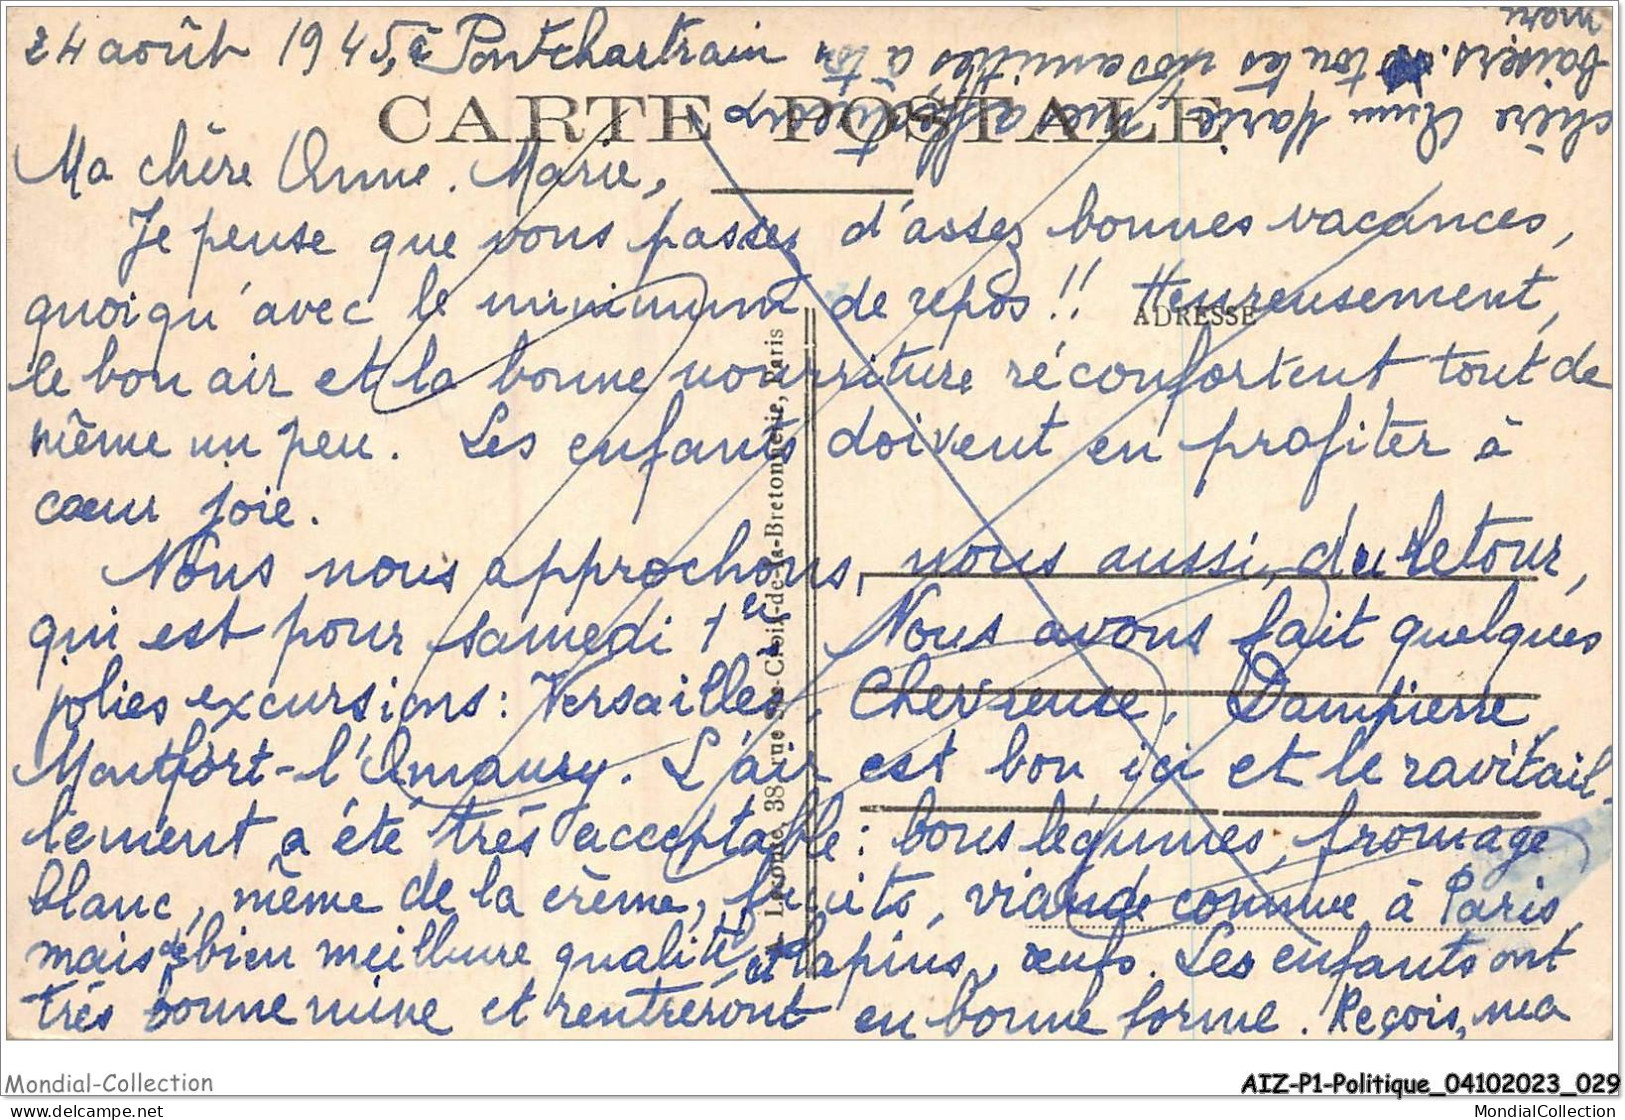 24 août 1945, à Pontchartrain
CARTE POSTALE
Ma chère Anne. Marie,
Je pense que vous passez d'assez bonnes vacances,
quoiqu'avec le minimum de repos!! Heureusement,
ADRESSE
le bon air et la bonne nourriture réconfortent tout de
même un peu. Les enfants doivent en profiter à
cœur joie.
Nous nous approchons, nous aussi, du retour,
qui est pour samedi 1er. Nous avons fait quelques
jolies excursions: Versailles, Chevreuse, Dampierre,
Montfort-l'Amaury. L'air est bon ici et le ravitail-
lement a été très acceptable: bons légumes, fromage
blanc, même de la crème, fruits, viande comme à Paris,
mais de bien meilleure qualité, et lapins, œufs. Les enfants ont
très bonne mine et rentreront en bonne forme. Reçois, ma
chère Anne Marie, mes affectueux
baisers. toutes nos amitiés à ton
mari
Leconte, 38, rue Ste-Croix-de-la-Bretonnerie, Paris
Mondial-Collection
AIZ-P1-Politique_04102023_029
https://www.delcampe.net
MondialCollection